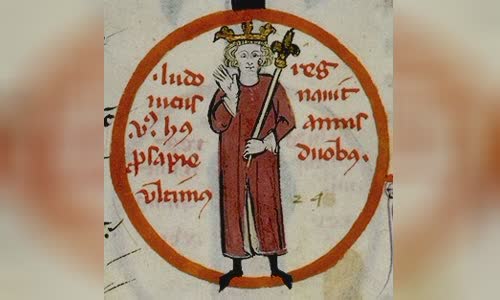 ·ludo
uicus
v⁹. hꝰ
ꝓsapie
vltimꝰ
reg
nauit
annis
duobꝫ.
24